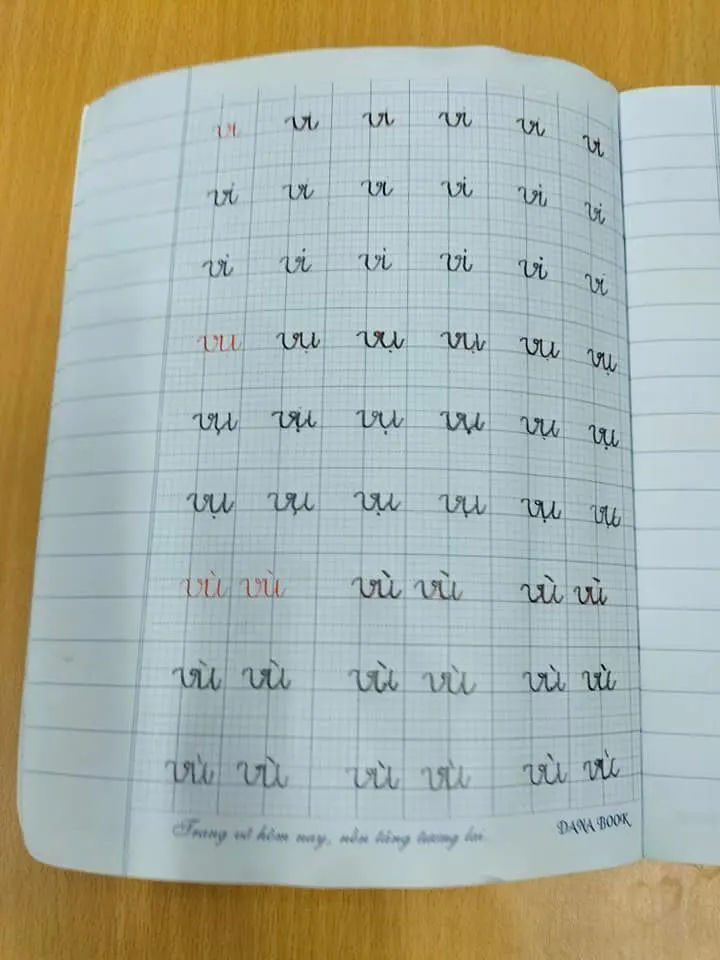 vi vi vi vi vi vi
vi vi vi vi vi vi
vi vi vi vi vi vi
vụ vụ vụ vụ vụ vụ
vụ vụ vụ vụ vụ vụ
vụ vụ vụ vụ vụ vụ
vù vù vù vù vù vù
vù vù vù vù vù vù
vù vù vù vù vù vù
Trang vở hôm nay, nền tảng tương lai.
DANA BOOK